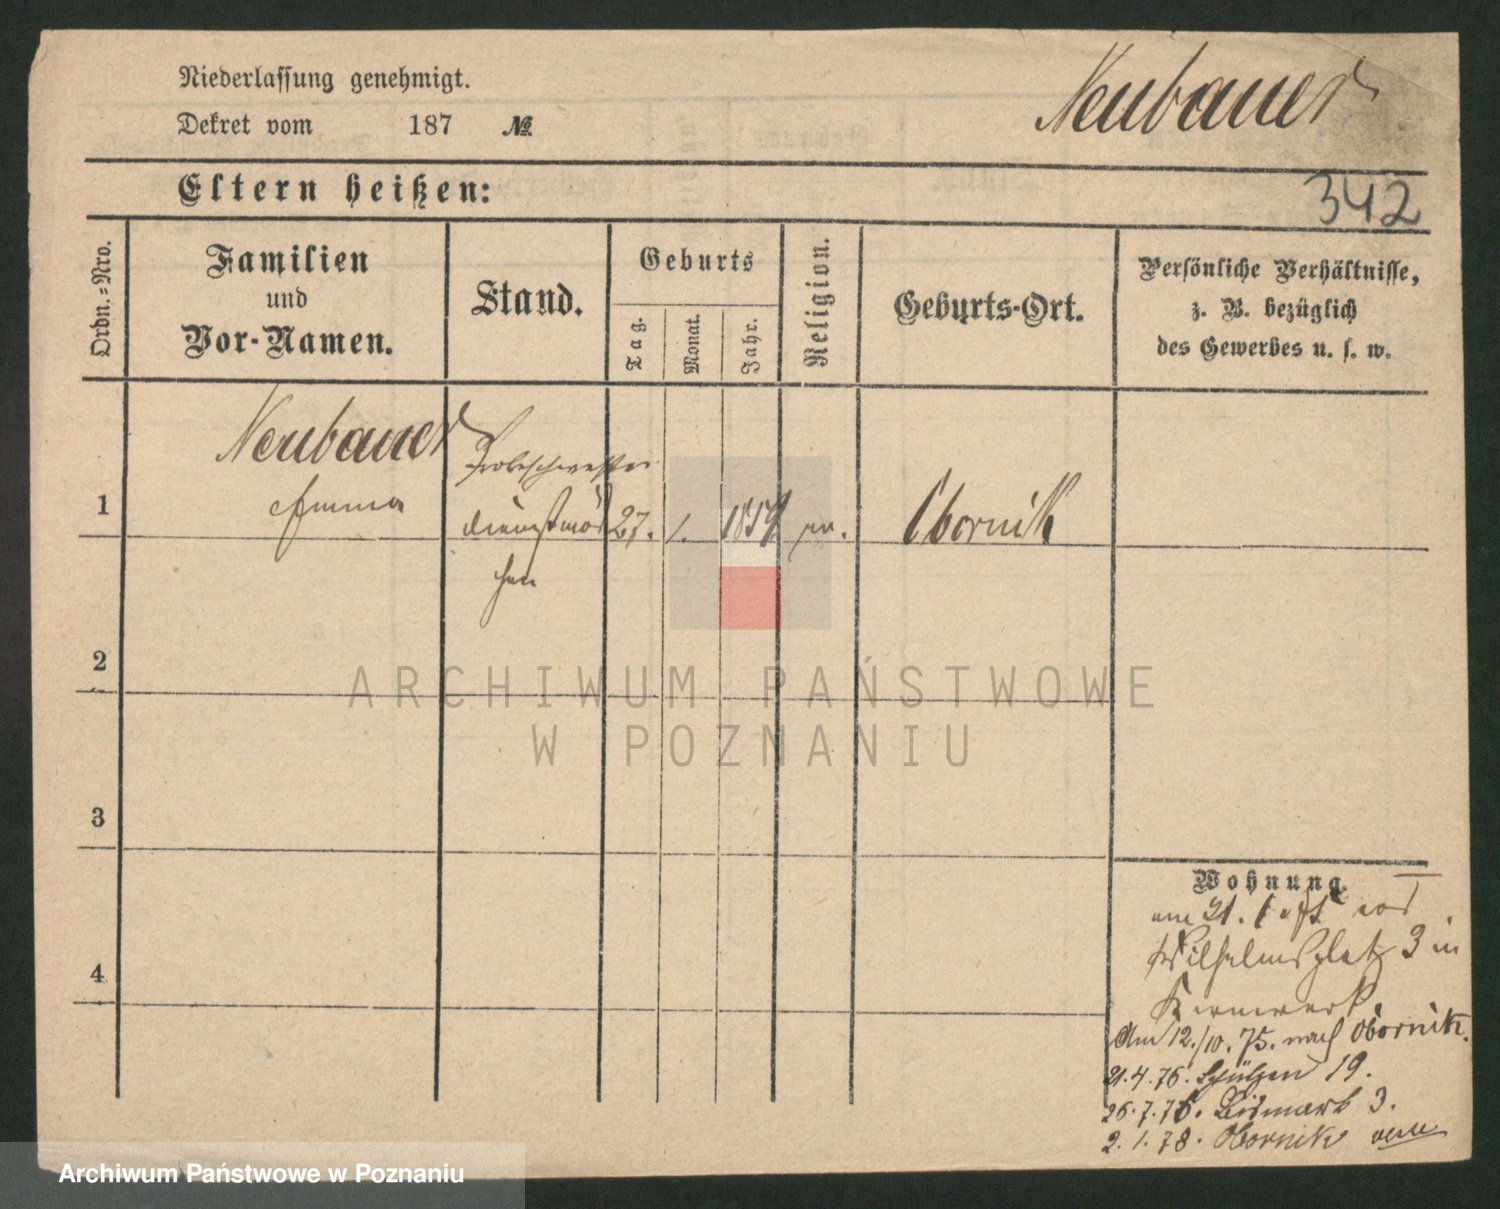 Niederlassung genehmigt.
Dekret vom 187 №
Neubauer
Eltern heißen:
342
Ordn.-Nro.
Familien
und
Vor-Namen.
Stand.
Geburts
Tag.
Monat.
Jahr.
Religion.
Geburts-Ort.
Persönliche Verhältnisse,
z. B. bezüglich
des Gewerbes u. s. w.
Neubauer
Emma
1
dienstmäd 27. 1. 1854 Obornik
chen
2
ARCHIWUM PAŃSTWOWE
W POZNANIU
3
4
Wohnung.
am 21.
Wilhelmsplatz 3 in
Am 12./10. 75. nach Obornik.
21.4.76. Schützen 19.
26.7.76. Bismark 3.
2.1.78. Obornik
Archiwum Państwowe w Poznaniu